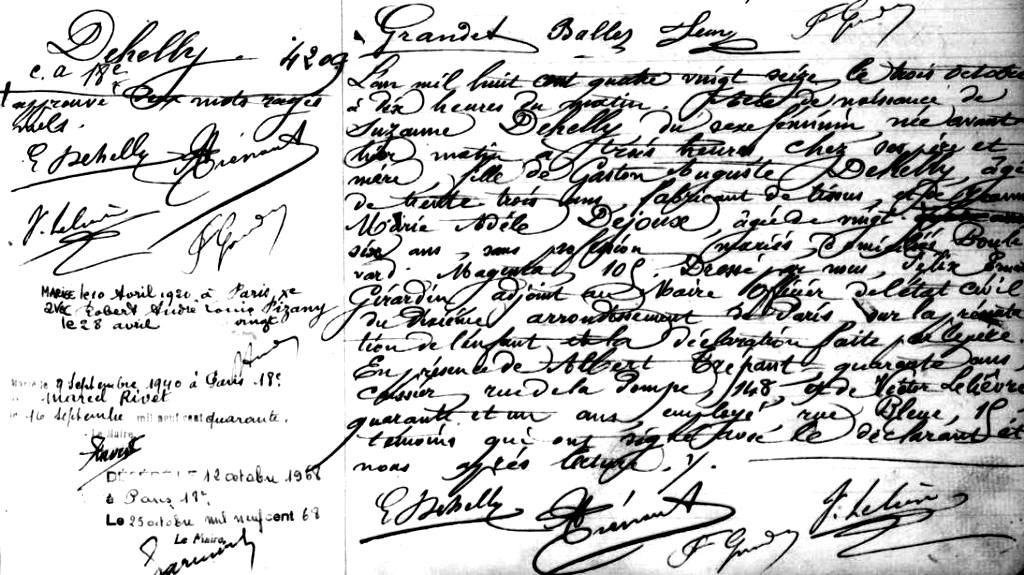 Dehelly. 4209
c. a 18e
approuvé deux mots rayés
nuls.
E Dehelly Trépant
V. Lelièvre F Girardin
MARIÉE le 10 Avril 1920 à Paris, Xe
avec Robert André Louis Pizany
le 28 avril vingt
Mariée le 9 Septembre 1940 à Paris 18e
Marcel Rivet
le 16 Septembre mil neuf cent quarante.
Le Maire
DÉCÉDÉE LE 12 octobre 1968
à Paris 18e
Le 25 octobre mil neuf cent 68
Le Maire
F Girardin
L'an mil huit cent quatre vingt seize, le trois octobre
à dix heures du matin. Acte de naissance de
Suzanne Dehelly, du sexe féminin, née avant
hier matin à trois heures chez ses père et
mère, fille de Gaston Auguste Dehelly, âgé
de trente trois ans, fabricant de tissus, et de Jeanne
Marie Adèle Dejoux, âgée de vingt
six ans, sans profession, mariés, domiciliés Boule
vard Magenta, 105. Dressé par nous, Félix Ernest
Girardin adjoint au Maire Officier de l'état civil
du dixième arrondissement de Paris, sur la présenta
tion de l'enfant et la déclaration faite par le père.
En présence de Albert Trépant quarante ans,
caissier rue de la Pompe, 148, et de Victor Lelièvre
quarante et un ans, employé rue Bleue, 15
témoins qui ont signé avec le déclarant et
nous après lecture. /.
E Dehelly Trépant F Girardin V. Lelièvre